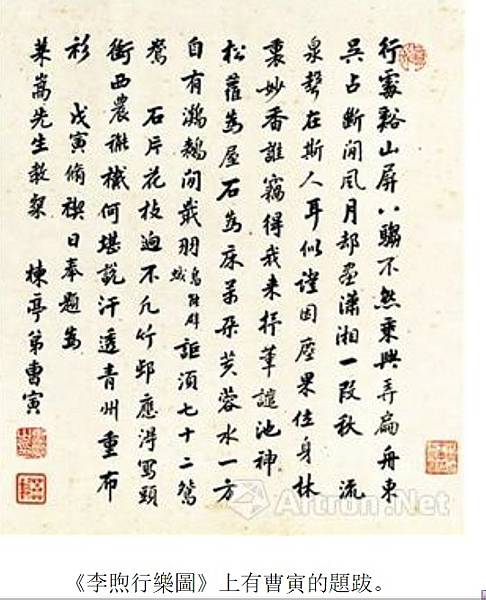 行處谿山屏八騶不然乘興弄扁舟東
吳占斷閒風月却畫瀟湘一段秋 流
泉聲在斯人耳似證因歷果位身林
裏妙香誰竊得我來抒筆讓池神
松蘿為屋石為床萬朵芙蓉水一方
自有鸂鶒閒戲羽詎須七十二鴛
鴦 石片花枝迥不凡竹邨應得署頭
銜西農機何堪說汗透青州重布
衫 戊寅脩禊日奉題為
萊嵩先生教粲 楝亭弟曹寅
Artron.Net
《李煦行樂圖》上有曹寅的題跋。